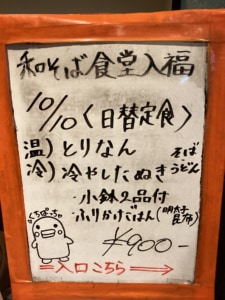 和そば食堂入福
10/10〈日替定食〉
温)とりなん
冷)冷やしたぬき
そば
うどん
・小鉢2品付
・ふりかけごはん(明太子
昆布)
¥900-
くちぱっち
⇒入口こちら⇒